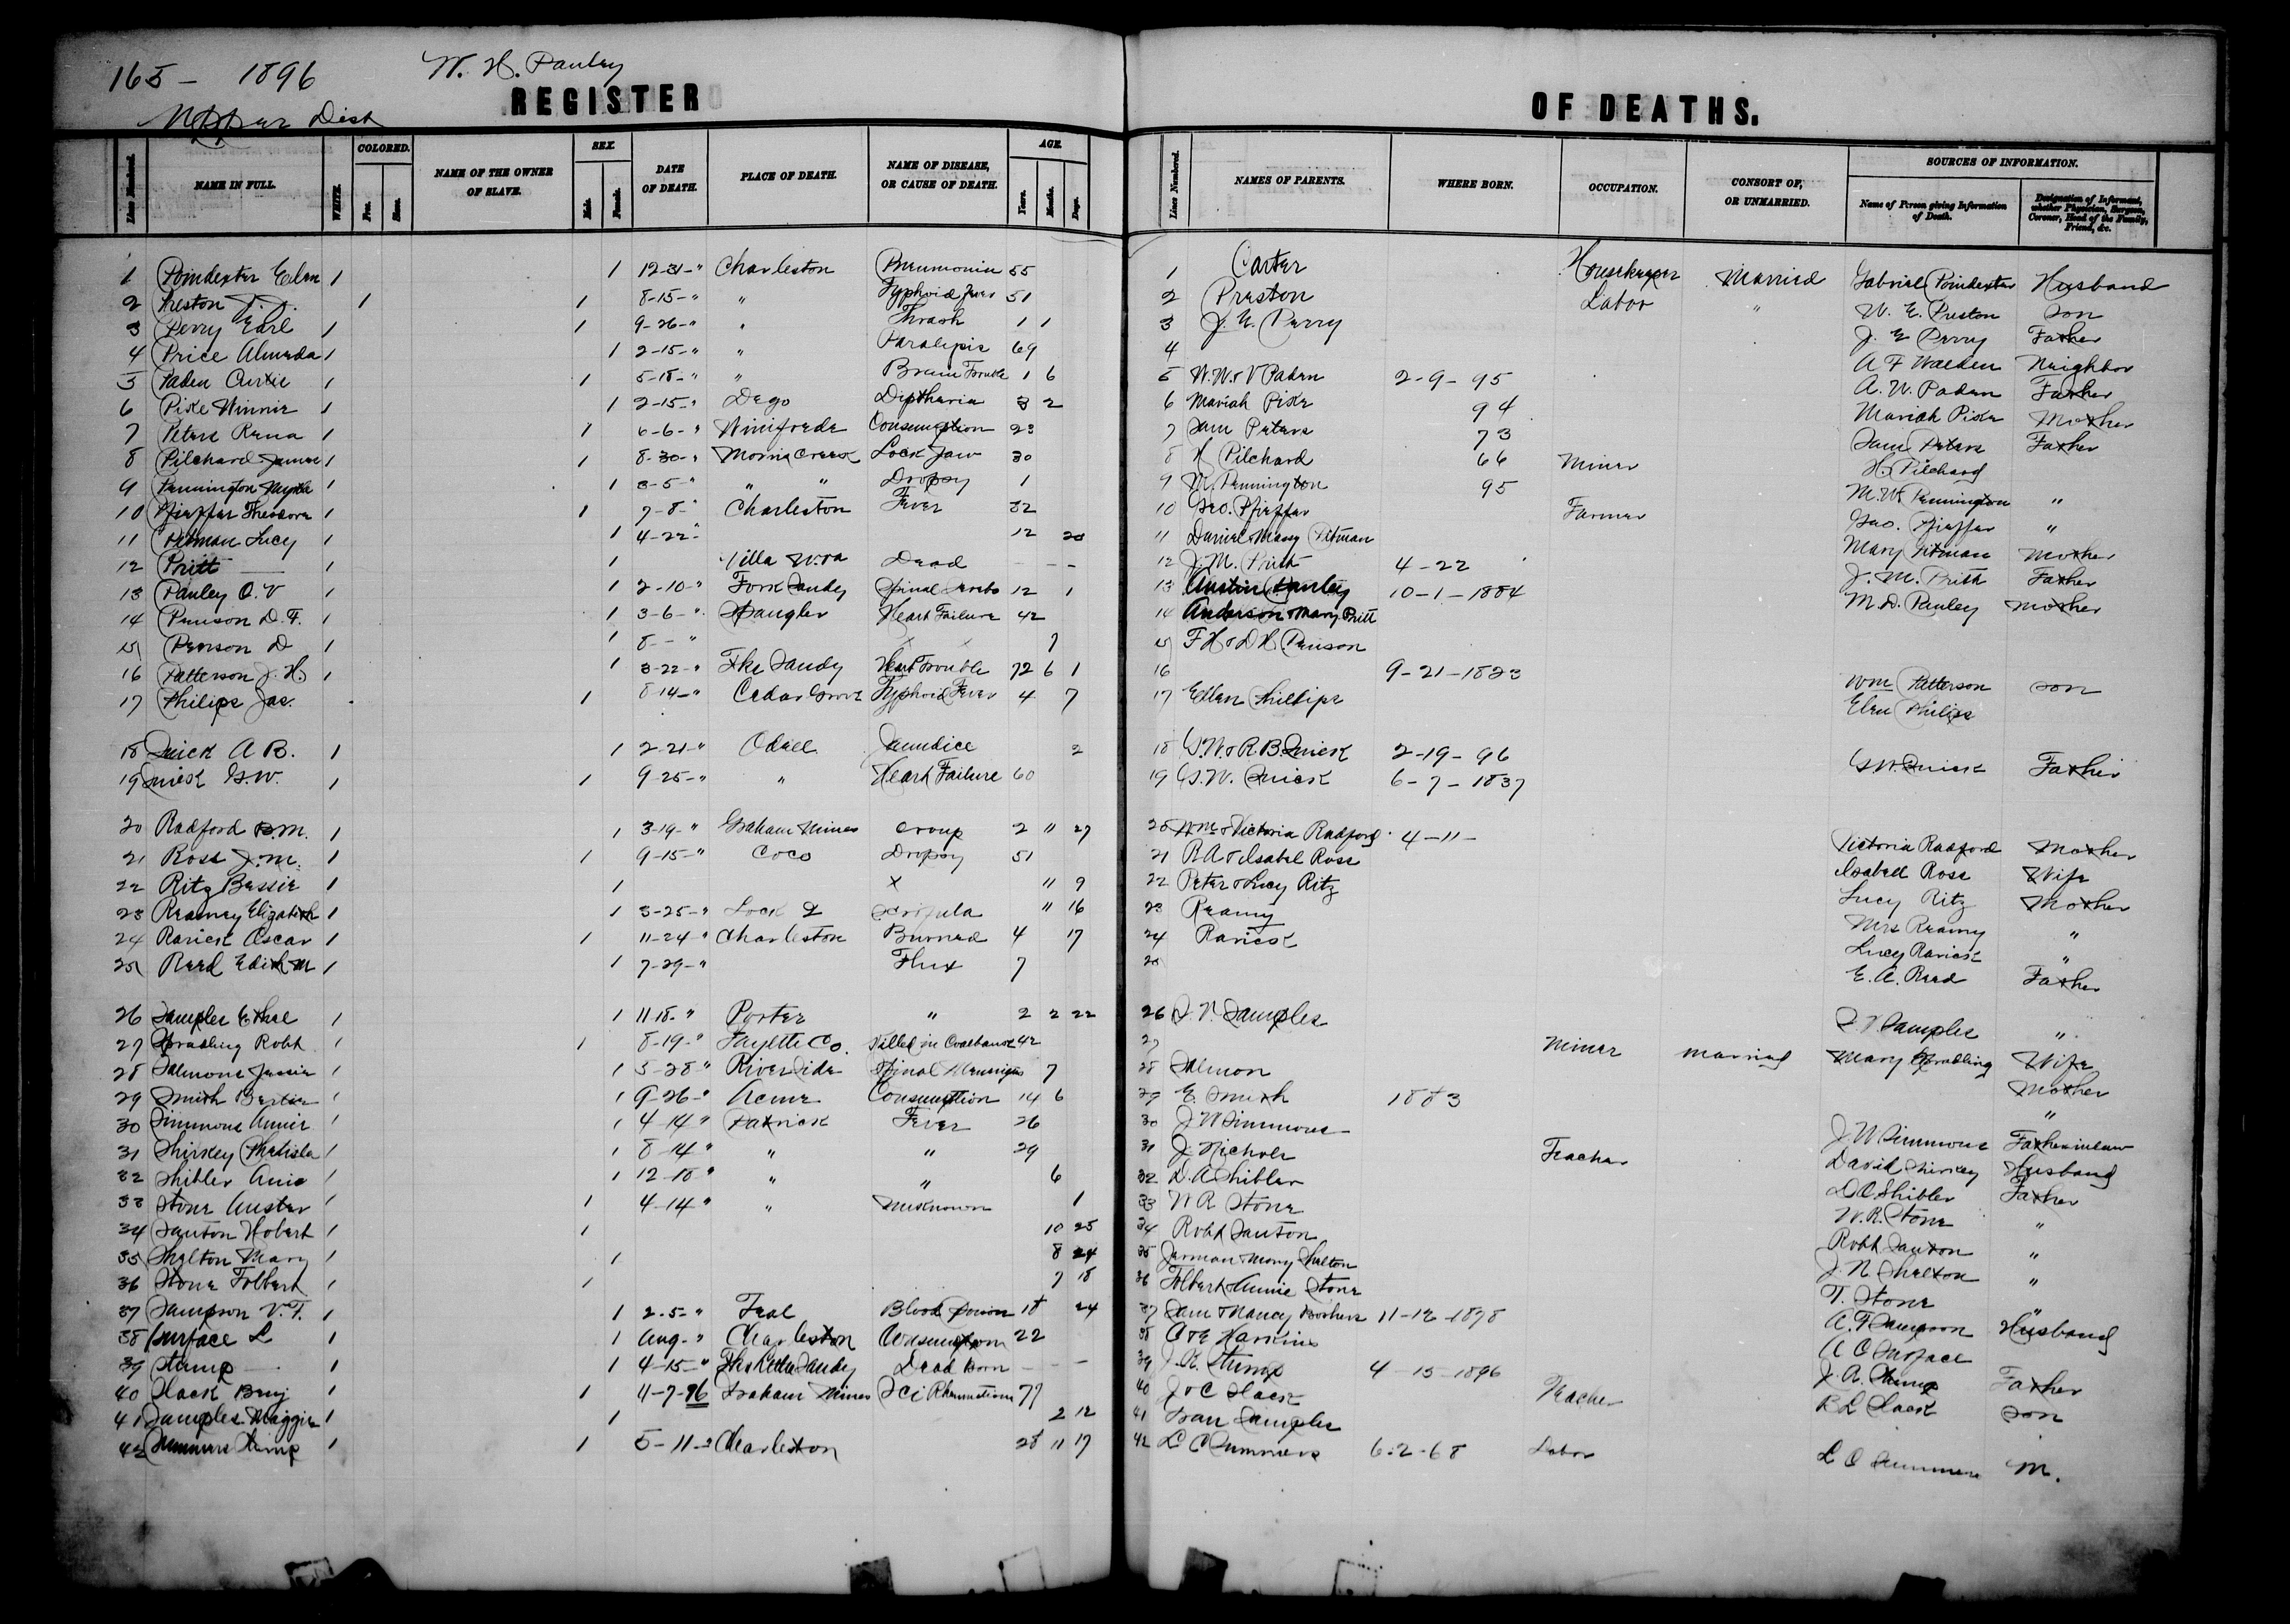 165 - 1896 W. H. Pauley
Upper Dist
REGISTER OF DEATHS.
Lines Numbered. NAME IN FULL. WHITE. COLORED. Free. Slave. NAME OF THE OWNER OF SLAVE. SEX. Male. Female. DATE OF DEATH. PLACE OF DEATH. NAME OF DISEASE, OR CAUSE OF DEATH. AGE. Years. Months. Days. Lines Numbered. NAMES OF PARENTS. WHERE BORN. OCCUPATION. CONSORT OF, OR UNMARRIED. SOURCES OF INFORMATION. Name of Person giving Information of Death. Designation of Informant, whether Physician, Surgeon, Coroner, Head of the Family, Friend, &c.
1 Poindexter Eden 1 1 12-31-" Charleston Pneumonia 55 1 Carter Housekeeper Married Gabriel Poindexter Husband
2 Preston J. J. 1 1 8-15-" " Typhoid Fever 51 2 Preston Labor " W. E. Preston Son
3 Perry Earl 1 1 9-26-" " Thrash 1 1 3 J. E. Perry J. E Perry Father
4 Price Almeda 1 1 2-15-" " Paralepis 69 4 A F Walden Neighbor
5 Paden Curtie 1 1 5-18-" " Brain Trouble 1 6 5 W. W. & V Paden 2-9-95 A. W. Paden Father
6 Pike Winnie 1 1 2-15-" Dego Diptheria 3 2 6 Mariah Pike 94 Mariah Pike Mother
7 Peters Rena 1 1 6-6-" Winifrede Consumption 23 7 Sam Peters 73 Sam Peters Father
8 Pilchard James 1 1 8-30-" Morris Creek Lock Jaw 30 8 H Pilchard 66 Miner H. Pilchard
9 Pennington Myrtle 1 1 3-5-" " " Dropsy 1 9 M. Pennington 95 M. W. Pennington "
10 Pfieffer Theodore 1 1 7-8-" Charleston Fever 32 10 Geo. Pfieffer Farmer Geo. Pfieffer "
11 Pitman Lucy 1 1 4-22-" 12 20 11 Daniel & Mary Pitman Mary Pitman Mother
12 Pritt — 1 1 Villa W.Va Dead - - - 12 J. M. Pritt 4-22 J. M. Pritt Father
13 Pauley O. V 1 1 2-10-" Fork Sandy Spinal 12 1 13 Austin Pauley 10-1-1884 M. D. Pauley Mother
14 Penson D. F. 1 1 3-6-" Spangler Heart Failure 42 14 Anderson & Mary Pritt
15 Penson D 1 1 8-" x x 7 15 F H & D H Penson
16 Patterson J. H. 1 1 3-22-" Fks Sandy Heart Trouble 72 6 1 16 9-21-1823 Wm Patterson Son
17 Philips Jas. 1 8-14-" Cedar Grove Typhoid Fever 4 7 17 Ellen Phillips Elen Philips
18 Quick A B. 1 1 2-21-" Odell Jaundice 2 18 G. W. & R. B. Quick 2-19-96
19 Quick G. W. 1 1 9-25-" " Heart Failure 60 19 G. W. Quick 6-7-1837 G. W. Quick Father
20 Radford M. 1 1 3-19-" Graham Mines Croup 2 " 27 20 Wm & Victoria Radford 4-11- Victoria Radford Mother
21 Ross J. M. 1 1 9-15-" Coco Dropsy 51 21 R A & Isabel Ross Isabell Ross Wife
22 Ritz Bessie 1 1 x " 9 22 Peter & Lucy Ritz Lucy Ritz Mother
23 Reamey Elizabeth 1 1 3-25-" Lock 2 Scrofula " 16 23 Reamy Mrs Reamy "
24 Rarick Oscar 1 1 11-24-" Charleston Burned 4 17 24 Rarick Lucy Rarick "
25 Reed Edith M 1 1 7-29-" Flux 7 25 E. A. Reed Father
26 Samples Ethel 1 1 11-18-" Porter " 2 2 22 26 S. V. Samples S V Samples "
27 Spradling Robt 1 1 8-19-" Fayette Co. Killed in Coalbank 42 27 Miner Married Mary Spradling Wife
28 Salmons Jessie 1 1 5-28-" River Side Spinal 7 28 Salmon Mother
29 Smith Bertie 1 1 9-26-" Acme Consumption 14 6 29 E. Smith 1883 "
30 Simmons Annie 1 1 4-14" Patrick Fever 26 30 J W Simmons J W Simmons Father in law
31 Shirkey 1 1 8-14" " " 29 31 J. Nichols Teacher David Shirkey Husband
32 Shibler Anie 1 1 12-18" " " 6 32 D. A Shibler D. A. Shibler Father
33 Stone Auster 1 1 4-14" " unknown 1 33 W R Stone W. R. Stone "
34 Santon Hobert 1 1 10 25 34 Robt Santon Robt Santon "
35 Shelton Mary 1 1 8 24 35 Jerman & Mary Shelton J. N. Shelton "
36 Stone Tolbert 1 1 7 18 36 Tolbert & Annie Stone T. Stone "
37 Sampson V. F. 1 1 2-5-" Teal Blood Poison 18 24 37 Sam & Nancy 11-12-1878 A. F Sampson Husband
38 Surface L 1 1 Aug-" Charleston Consumption 22 38 A & E Harkins A O Surface
39 Stump — 1 1 4-15-" Sandy Dead Born - - - 39 J. R. Stump 4-15-1896 J. R. Stump Father
40 Slack Benj 1 1 4-7-96 Graham Mines Sci Rhumatism 77 40 J & C Slack Teacher B L Slack Son
41 Samples Maggie 1 1 2 12 41 Ivan Samples
42 Summers 1 1 5-11-" Charleston 28 11 17 42 L C Summers 6-2-68 Labor L C Summers M.